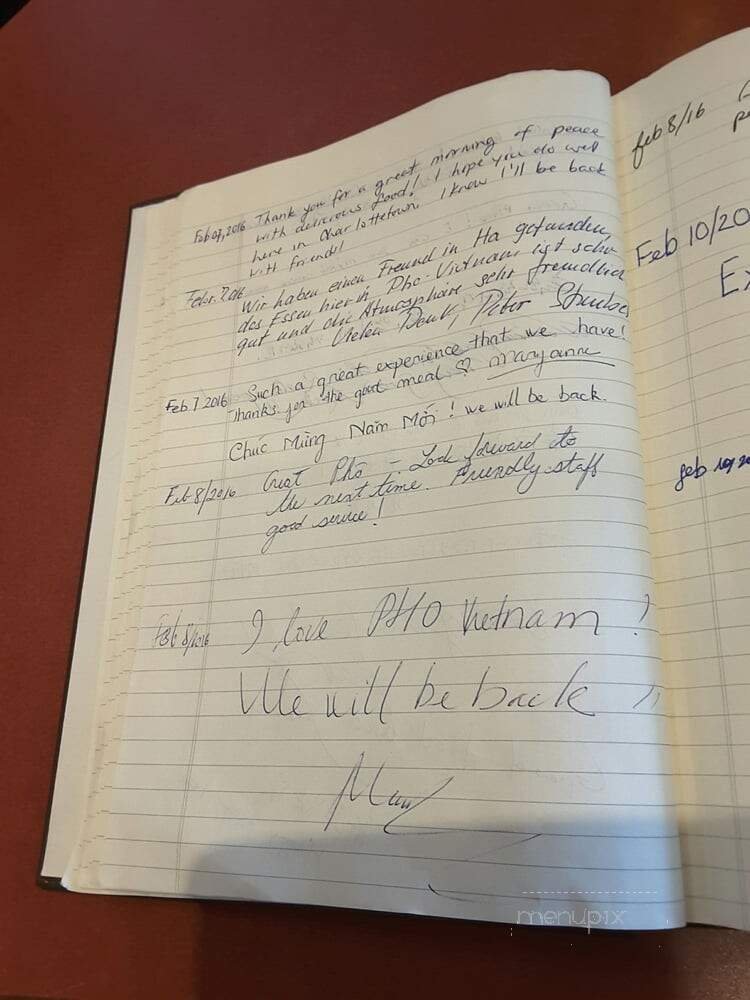 Feb 07, 2016 Thank you for a great morning of peace
with delicious food! I hope you do well
here in Charlottetown. I know I'll be back
with friends!
Febr. 7. 2016 Wir haben einen Freund in Ha gefunden,
das Essen hier in Pho-Vietnam ist sehr
gut und die Atmosphäre sehr freundlich
Vielen Dank, Peter
Feb 7 2016 Such a great experience that we have!
Thanks for the good meal ♡. Maryanne
Chúc Mừng Năm Mới! we will be back.
Feb 8/2016 Great Pho - Look forward to
the next time. Friendly staff
good service!
Feb 8/2016 I love PHO Vietnam!
We will be back !!
feb 8/16
Feb 10/20
Ex
feb 10, 20
menupix